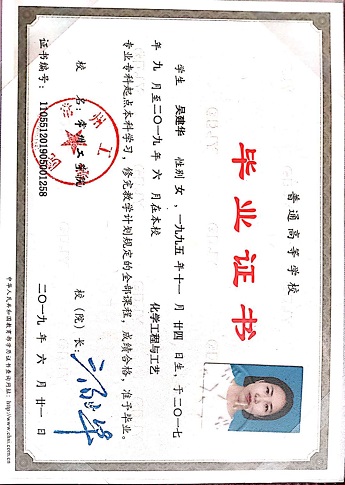 普通高等学校
毕业证书
学生 吴建华 性别 女，一九九五 年 十一 月 廿四 日生，于 二〇一七
年 九 月至 二〇一九 年 六 月在本校 化学工程与工艺
专业 专科起点本科学习，修完教学计划规定的全部课程，成绩合格，准予毕业。
校 名： 学院 校（院）长：
证书编号： 110551201905001258 二〇一九 年 六 月 廿一 日
中华人民共和国教育部学历证书查询网址：http://www.chsi.com.cn